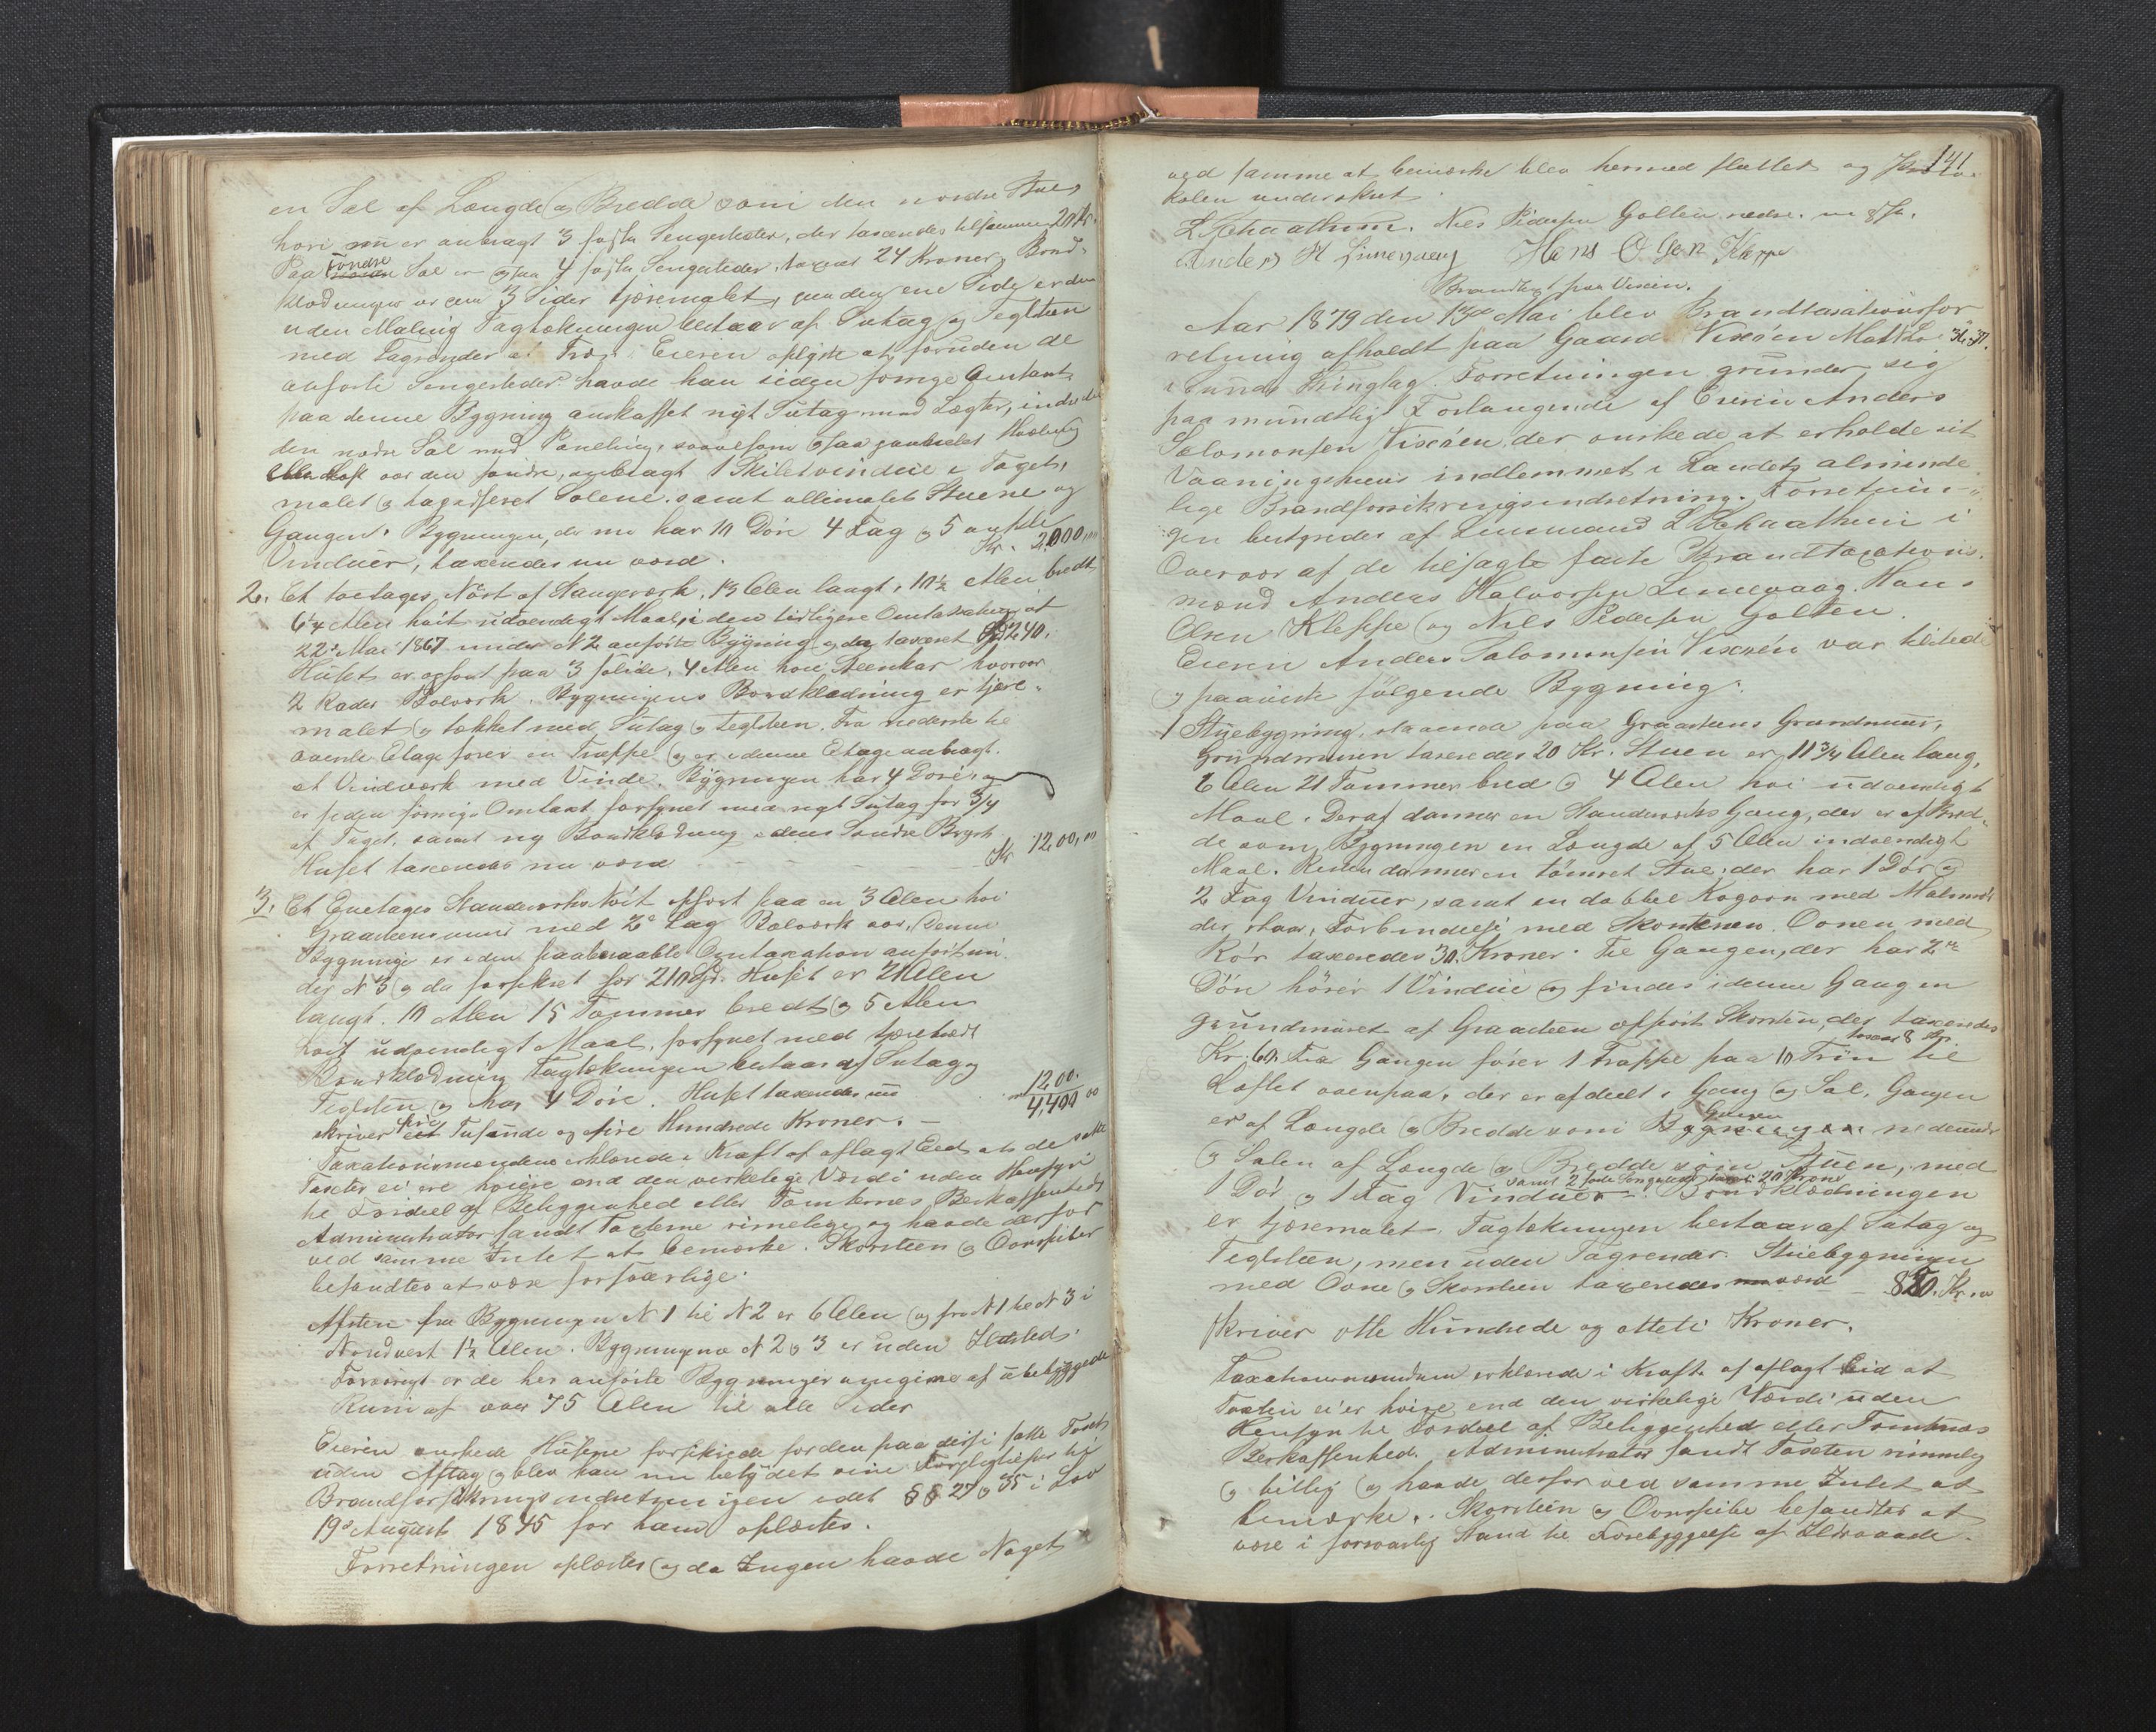 en Sal af Længde og Bredde som den nordre Stue,
hvori nu er anbragt 3 faste Sengesteder, der taxeredes tilsammen 20 Kr.
Paa søndre Sal er ogsaa 4 faste Sengesteder, taxeret 24 Kroner, Bord-
klædningen er paa 3 Sider tjæremalet, paa den ene Side er den
uden Maling Tagtækningen bestaar af Sutag og Teglsten
med Tagrender af Træ. Eieren oplyste at foruden de
anførte Sengesteder havde han siden forrige Omtaxt
paa denne Bygning anskaffet nyt Sutag med Lægter, indredet
den nodre Sal med Paneling, saavelsom ogsaa
over den søndre, anbragt 1 Skiletvindue i Taget,
malet og tapedseret Salene, samt ollimalet Stuene og
Gangen. Bygningen, der nu har 10 Døre 4 Fag og 5 enkelte
Vinduer, taxeredes nu værd. Kr. 2,000,00
2. Et toetages Nøst af Stangværk, 13 Alen langt, 10½ Alen bredt
6¼ Alen høit udvendigt Maal, i den tidligere Omtaxation af
22de Mai 1867 under N 2 anførte Bygning og da taxeret Spd 240.
Huset er opført paa 3 solide, 4 Alen høie Steenkar hvorover
2 Rader Bolværk. Bygningens Bordklædning er tjære-
malet og tækket med Sutag og Teglsten. Fra nederste til
øverste Etage fører en Trappe og er i denne Etage anbragt
et Vindværk med Vinde. Bygningen har 4 Døre og
er siden forrige Omtaxt forsynet med nyt Sutag for 3/4
af Taget, samt ny Bordklædning i dens Søndre Bryst
Huset taxeredes nu værd - - - Kr 12,00,00
3. Et Enetages Standværks Nøst opført paa en 3 Alen høi
Graastensmuur med 2de Lag Bolværk over, Denne
Bygning er i den paaberaabte Omtaxation anført un-
der N 3 og da forsikret for 210 Spd. Huset er 21 Alen
langt. 10 Alen 15 Tommer bredt og 5 Alen
høit udvendigt Maal, forsynet med tjærebredt
Bordklædning Tagtækningen bestaar af Sutag og
Teglsten og har 4 Døre. Huset taxeredes nu 12,00.
4,400 00
skriver fire Tusende og fire Hundrede Kroner. -
Taxationsmændene erklærede i Kraft af aflagt Eed at de satte
Taxter ei ere høiere end den virkelige Værdi uden Hensyn
til Fordeel af Beliggenhed eller Tomternes Beskaffenhed,
Administrator fandt Taxterne rimelige og havde derfor
ved samme Intet at bemærke. Skorsteen og Ovnspiber
befandtes at være forsvarlige.
Afsten fra Bygningen N 1 til N 2 er 6 Alen og fra N 1 til N 3 i
Nordvest 1½ Alen. Bygningerne N 2 og 3 er uden Ildsted.
Forøvrigt er de her anførte Bygninger omgivne af ubebyggede
Rum af over 75 Alen til alle Sider
Eieren ønskede Husene forsikrede for den paa disse satte Taxt
uden Aftag og blev han nu betydet sine Forpligtelser til
Brandforsikringsindretningen idet §§ 27 og 35 i Lov
19de August 1845 for ham oplæstes.
Forretningen oplæstes og da Ingen havde Noget
141
ved samme at bemærke blev hermed sluttet og Proto-
kolen underskret
L Schaathun. Nils Pedersen Golten nedre. m. f. P.
Anders H Linnevaag Hans Olsen Kleppe
Brandtaxt paa Vixøen.
Aar 1879 den 13de Mai blev Brandtaxationsfor-
retning afholdt paa Gaard Vixøen Mat Lo 36, 37.
i Sunds Thinglag. Forretningen grunder sig
paa mundtligt Forlangende af Eieren Anders
Salomonsen Vixøen, der ønskede at erholde sit
Vaaningshuus indlemmet i Landets alminde-
lige Brandforsikringsindretning. Forretnin-
gen bestyredes af Lensmand L Schaathun i
Overvær af de tilsagte faste Brandtaxations-
mænd Anders Halvorsen Linnevaag. Hans
Olsen Kleppe og Nils Pedersen Golten
Eieren Anders Salomonsen Vixøen var tilstede
og paaviste følgende Bygning:
1 Stuebygning, staaende paa Graastens Grundmuur,
Grundmuren taxeredes 20 Kr. Stuen er 11 3/4 Alen lang,
6 Alen 21 Tommer bred og 4 Alen høi udvendigt
Maal. Deraf danner en Standværks Gang, der er af Bred-
de som Bygningen en Længde af 5 Alen indvendigt
Maal. Resten danner en tømret Stue, der har 1 Dør og
2 Fag Vinduer, samt en dobbel Kogovn med Malmrør
der staar i Forbindelse med Skorstenen. Ovnen med
Rør taxeredes 30. Kroner. Til Gangen, der har 2de
Døre hører 1 Vindue og findes i denne Gang en
grundmuret af Graasteen opført Skorsten, der taxeredes
taxeret 8 Kr.
Kr. 60. Fra Gangen fører 1 Trappe paa 10 Trin til
Loftet ovenpaa, der er afdeelt i Gang og Sal. Gangen
er af Længde og Bredde som Gangen nedenunder
og Salen af Længde og Bredde som Stuen, med
samt 2 faste Sengesteder taxeret 20 Kroner
1 Dør og 1 Fag Vinduer. Bordklædningen
er tjæremalet. Tagtækningen bestaar af Sutag og
Teglsteen, men uden Tagrender. Stuebygningen
med Ovne og Skorsten taxeredes værd 880. Kr. 00
skriver otte Hundrede og otteti Kroner.
Taxationsmændene erklærede i Kraft af aflagt Eid at
Taxten ei er høiere end den virkelige Værdi uden
Hensyn til Fordeel af Beliggenhed eller Tomternes
Beskaffenhed. Administrator fandt Taxten rimmelig
og billig og havde derfor ved samme Intet at
bemærke. Skorsten og Ovnspibe befandtes at
være i forsvarlig Stand til Forebyggelse af Ildsvaade.